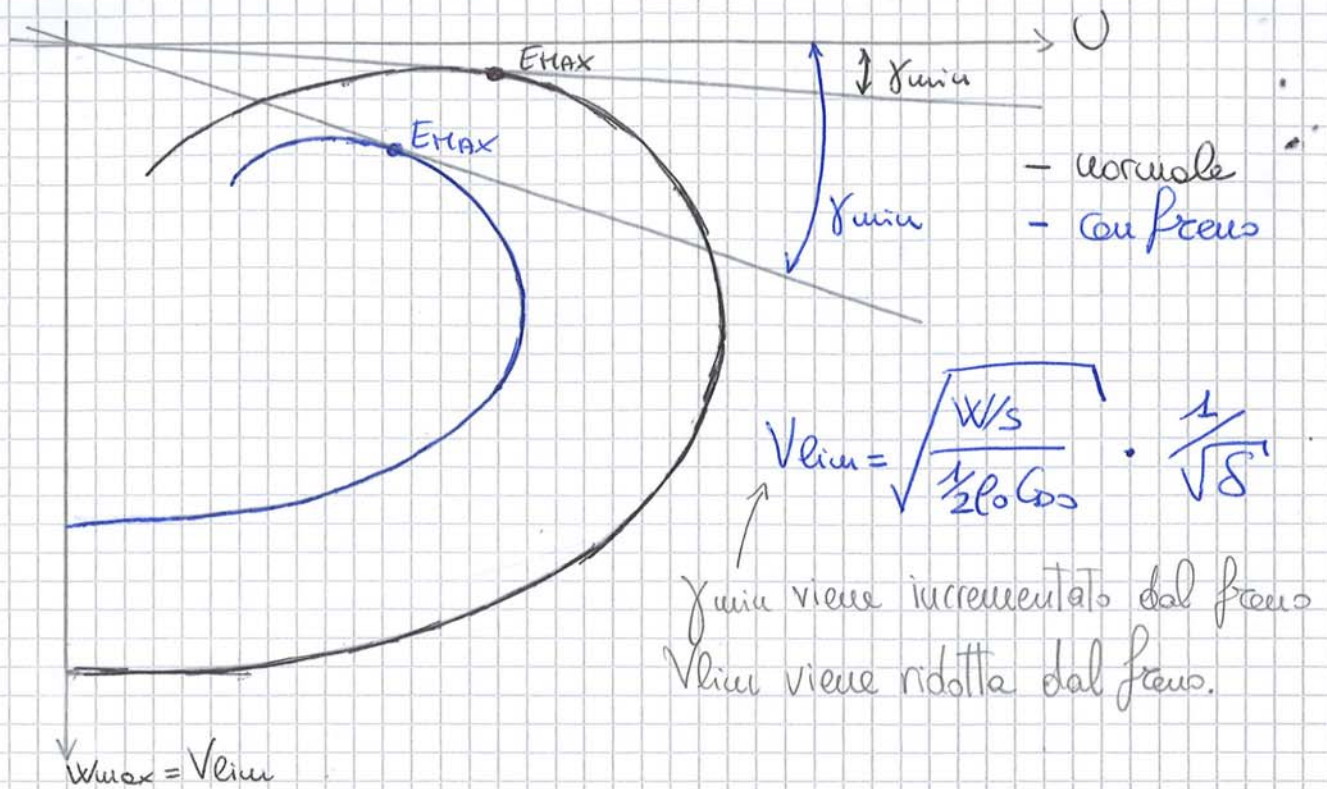 U
EMAX
γmin
EMAX
- normale
γmin
- con freno
Vlim = √((W/s)/(1/2 ρ0 CD0)) · 1/√δ
γmin viene incrementato dal freno
Vlim viene ridotta dal freno.
Wmax = Vlim